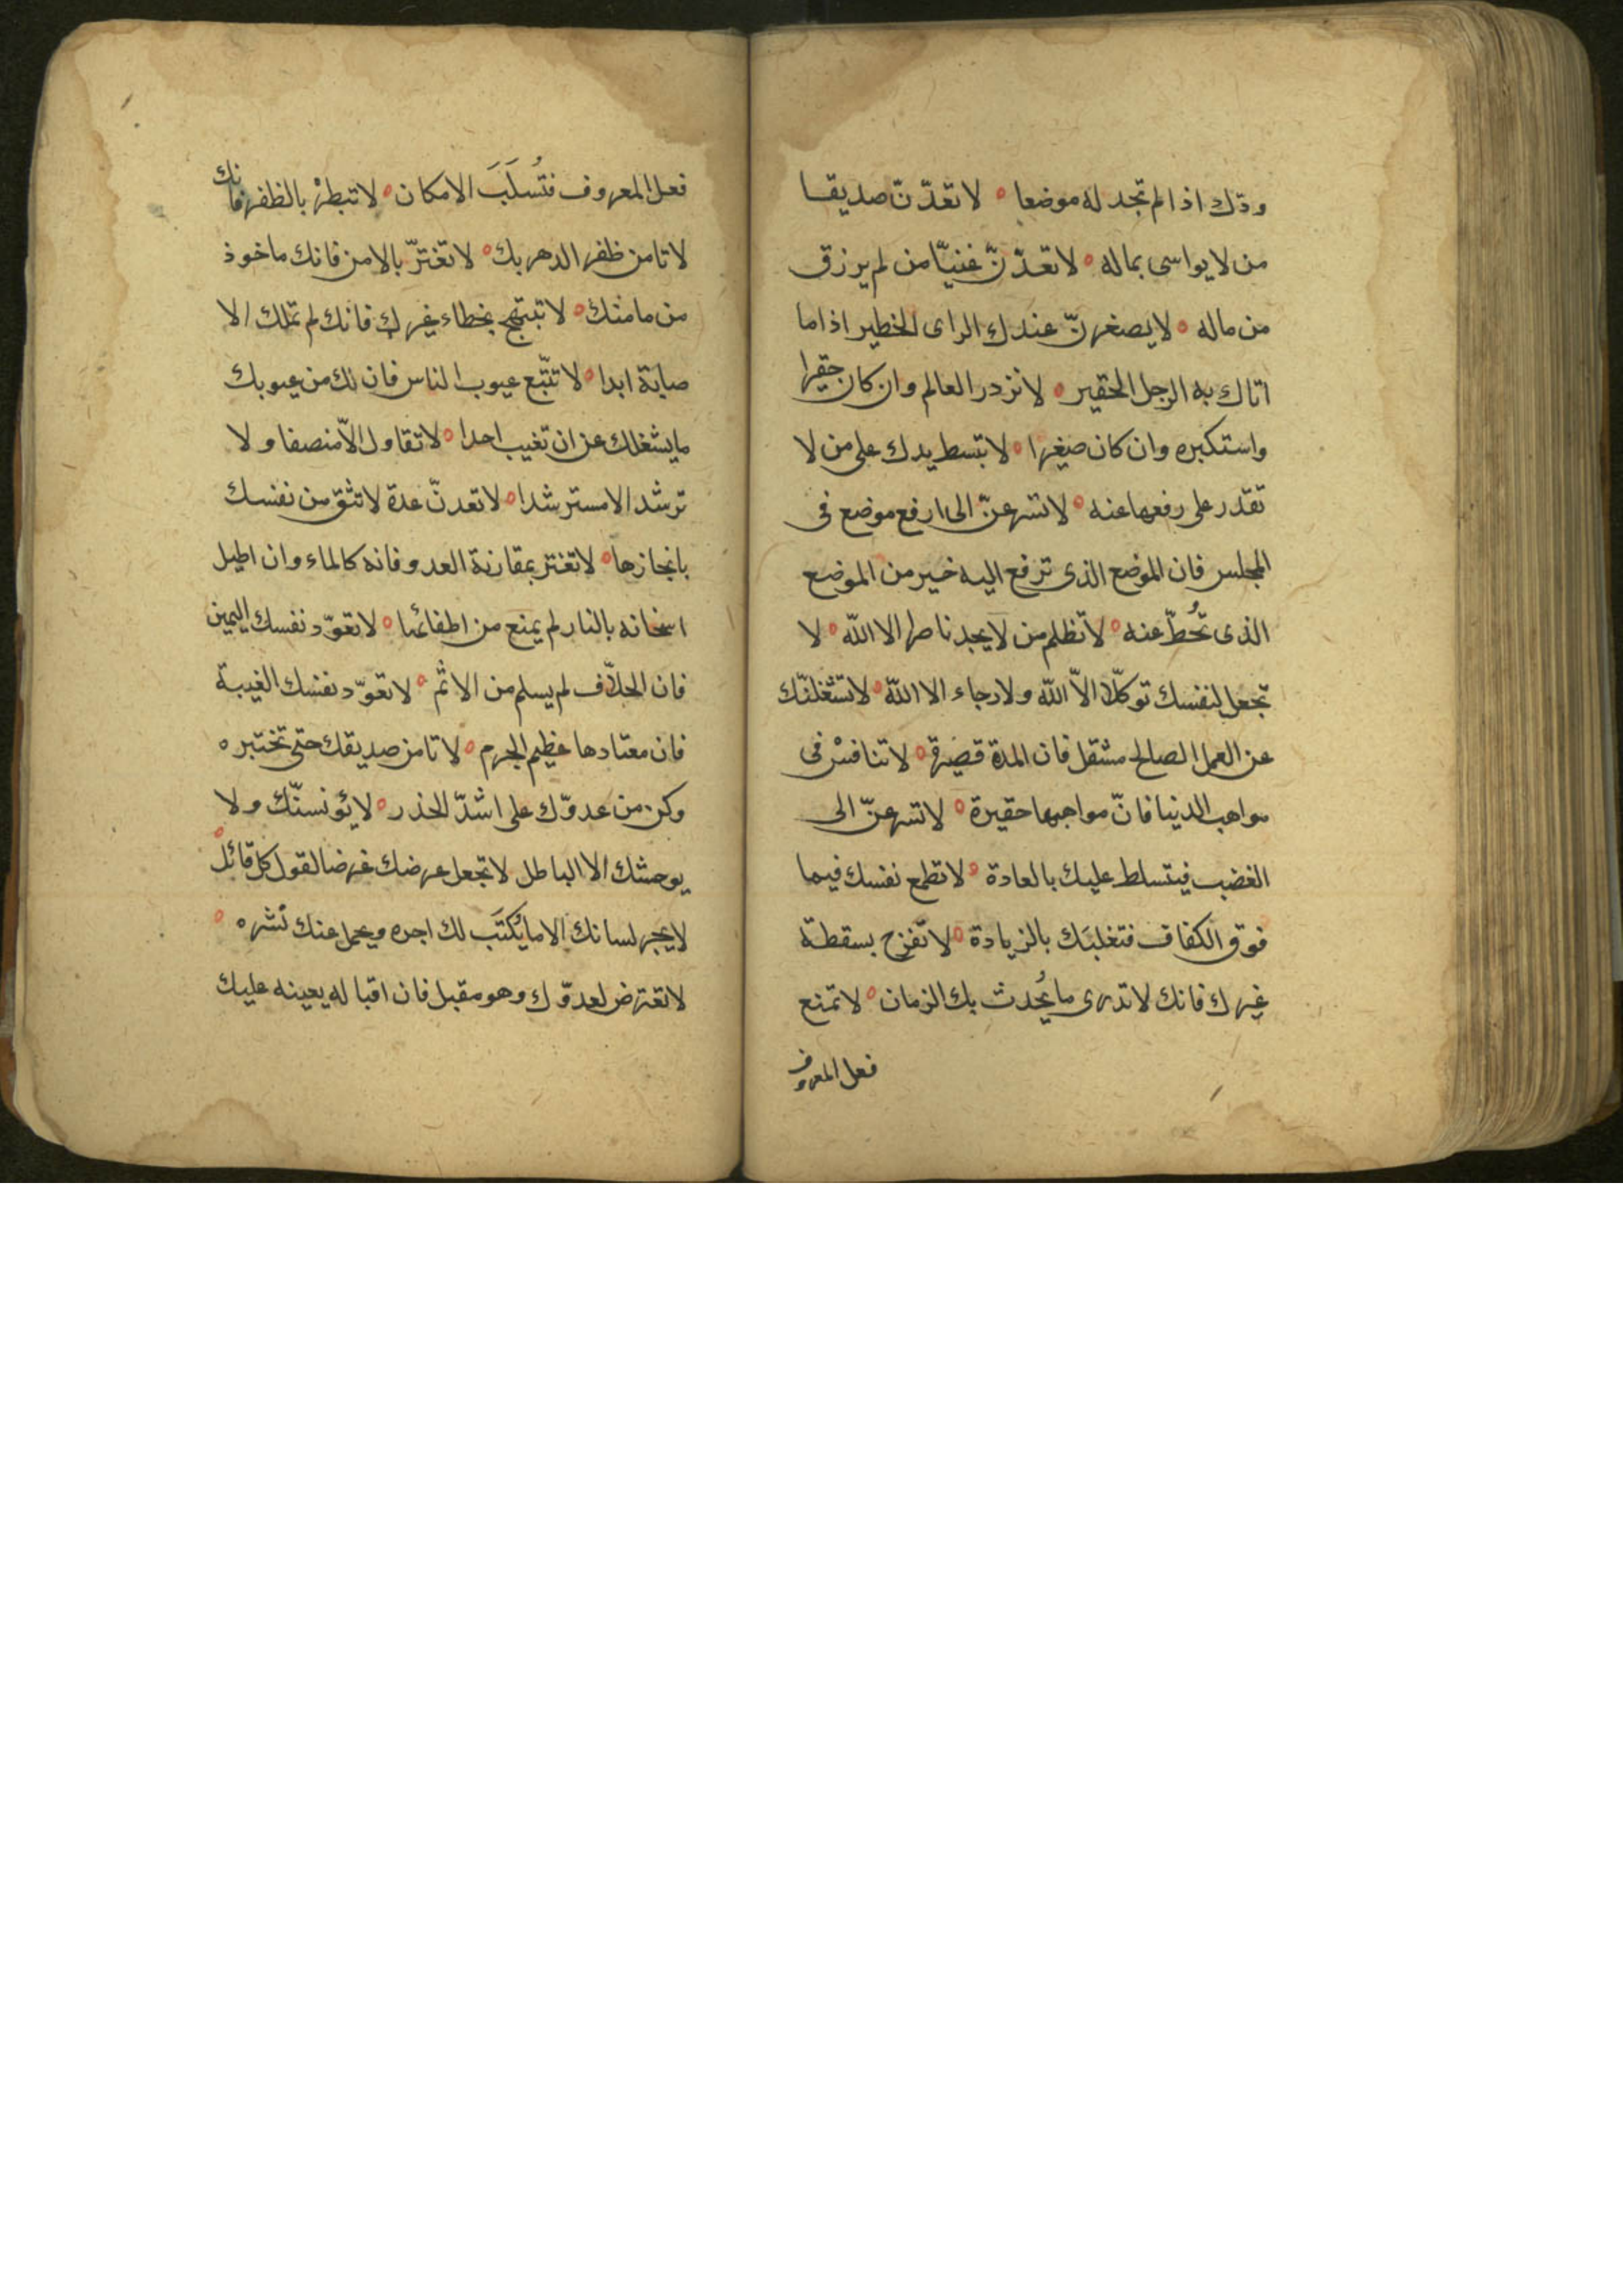 ودّك اذا لم تجد له موضعا ه لا تعدّنّ صديقا
من لا يواسى بماله ه لا تعدّنّ غنيّا من لم يرزق
من ماله ه لا يصغرنّ عندك الراى الخطير اذا ما
اتاك به الرجل الحقير ه لا تزدر العالم وان كان حقيرا
واستكبره وان كان صغيرا ه لا تبسط يدك على من لا
تقدر على رفعها عنه ه لا تسرعنّ الى ارفع موضع فى
المجلس فان الموضع الذى ترفع اليه خير من الموضع
الذى تُحطّ عنه ه لا تظلم من لا يجد ناصرا الا الله ه لا
تجعل لنفسك توكلّا الاّ الله ولا رجاء الا الله ه لا تشغلنّك
عن العمل الصالح مثقل فان المدة قصيرة ه لا تنافسْ فى
مواهب الدنيا فانّ مواهبها حقيرة ه لا تسرعنّ الى
الغضب فيتسلط عليك بالعادة ه لا تطمع نفسك فيما
فوق الكفاف فتغلبَك بالزيادة ه لا تفرح بسقطة
غيرك فانك لا تدرى ما يُحدث بك الزمان ه لا تمنع
فعل المعروف
فعل المعروف فتُسلَبَ الامكان ه لا تبطرْ بالظفر فانك
لا تامن ظفر الدهر بك ه لا تغترّ بالامن فانك ماخوذ
من مامنك ه لا تبتهج بخطاء غيرك فانك لم تملك الا
صابة ابدا ه لا تتّبع عيوب الناس فان لك من عيوبك
ما يشغلك عن ان تغيب احدا ه لا تقاول الاّ منصفا ولا
ترشد الا مسترشدا ه لا تعدنّ عدة لا تثق من نفسك
بانجازها ه لا تغتر بمقارنة العدو فانه كالماء وان اطيل
اسخانه بالنار لم يمنع من اطفائها ه لا تعوّد نفسك اليمين
فان الحلاّف لم يسلم من الاثم ه لا تعوّد نفسك الغيبة
فان معتادها عظيم الجرم ه لا تامن صديقك حتى تختبره
وكن من عدوّك على اشدّ الحذر ه لا يؤنسنّك ولا
يوحشك الا الباطل لا تجعل عرضك غرضا لقول كل قائل ه
لا يجر لسانك الا ما يُكتَب لك اجره ويحمل عنك نشره ه
لا تعترض لعدوّك وهو مقبل فان اقباله يعينه عليك